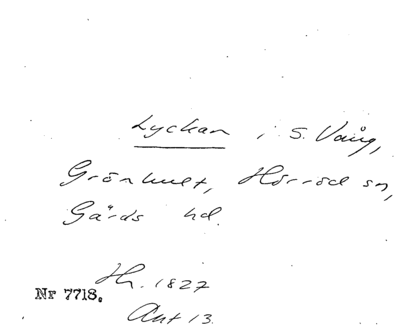 Lyckan i S. Vång,
Grönhult, Hörröd sn,
Gärds hd.
Hh. 1827
Nr 7718.
Akt 13.